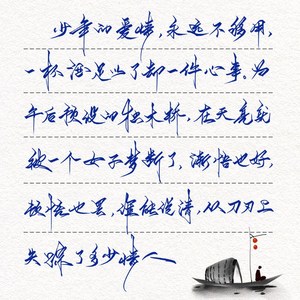 少年的爱情，永远不够用，
一杯酒足以了却一件心事，为
午后预设的独木桥，在天亮就
被一个女子梦断了，渐悟也好，
顿悟也罢，谁能说清，从刀刃上
失踪了多少情人